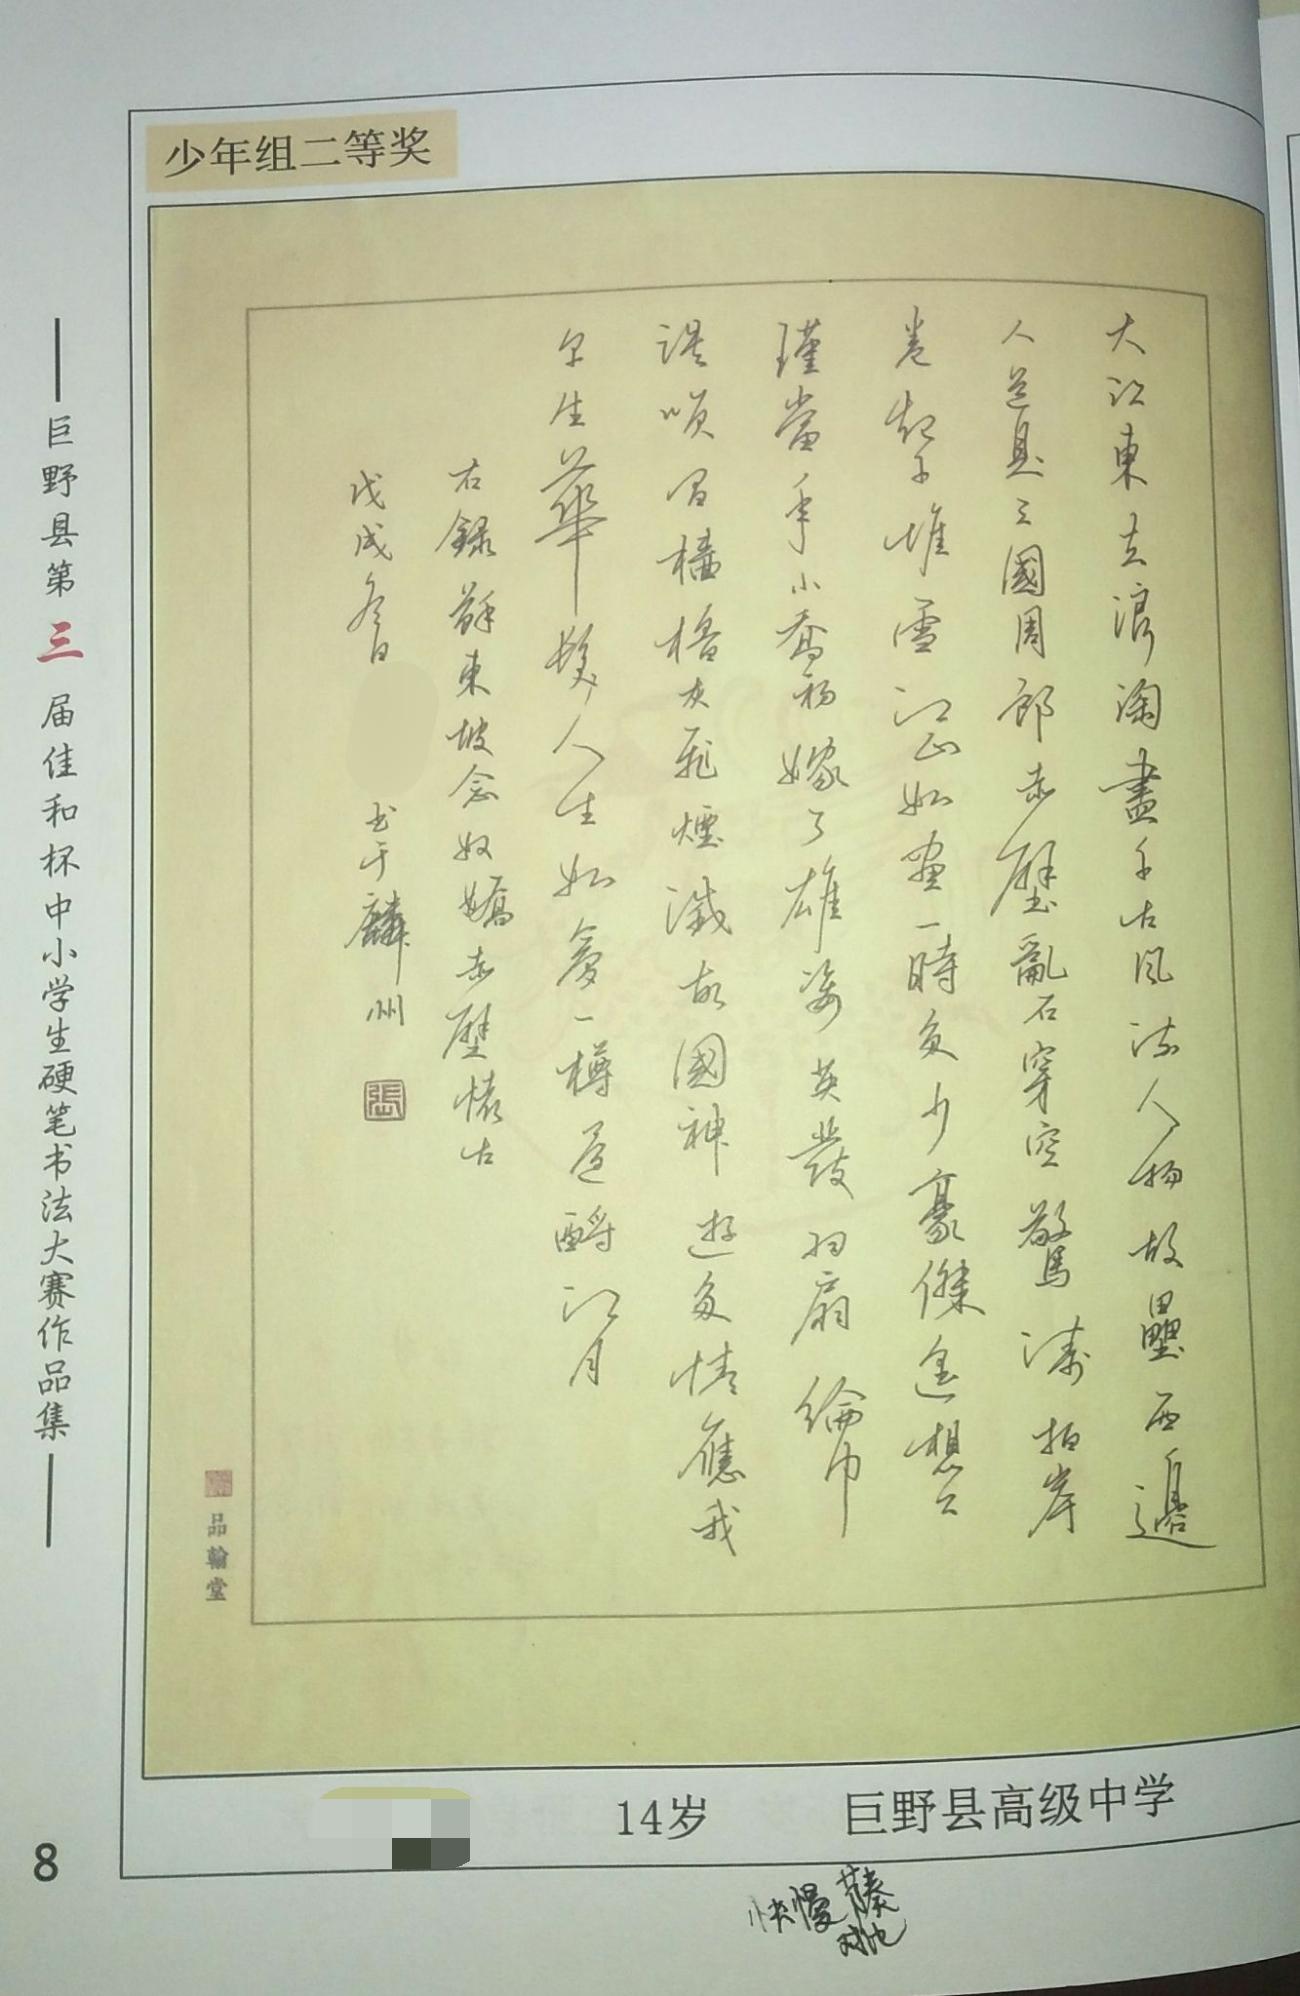 少年组二等奖
大江東去浪淘盡千古風流人物故壘西邊
人道是三國周郎赤壁亂石穿空驚濤拍岸
卷起千堆雪江山如畫一時多少豪傑遙想公
瑾當年小喬初嫁了雄姿英發羽扇綸巾
談笑間檣櫓灰飛煙滅故國神遊多情應我
早生華髮人生如夢一樽還酹江月
右録蘇東坡念奴嬌赤壁懷古
戊戌冬日
書于麟州
張
品翰堂
巨野县第三届佳和杯中小学生硬笔书法大赛作品集
14岁 巨野县高级中学
8
快慢
对比